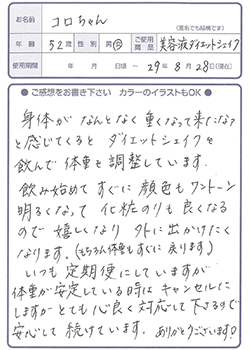 お名前 コロちゃん
(匿名でも結構です)
年齢 52歳 性別 男・女 ご使用商品 美容液ダイエットシェイク
使用期間 年 月 日頃 ~ 29年 8月 28日(現在)
●ご感想をお書き下さい カラーのイラストもOK●
身体がなんとなく重くなって来たな?
と感じてくると ダイエットシェイクを
飲んで体重を調整しています。
飲み始めてすぐに顔色もワントーン
明るくなって 化粧のりも良くなる
ので嬉しくなり 外に出かけたく
なります。(もちろん体重もすぐに戻ります)
いつも定期便にしていますが
体重が安定している時はキャンセルに
しますがとても心良く対応して下さるので
安心して続けています。ありがとうございます!